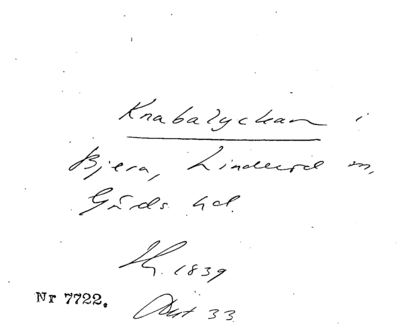 Knabalyckan i
Bjera, Linderöd sn,
Gärds hd.
1839
Akt 33
Nr 7722.